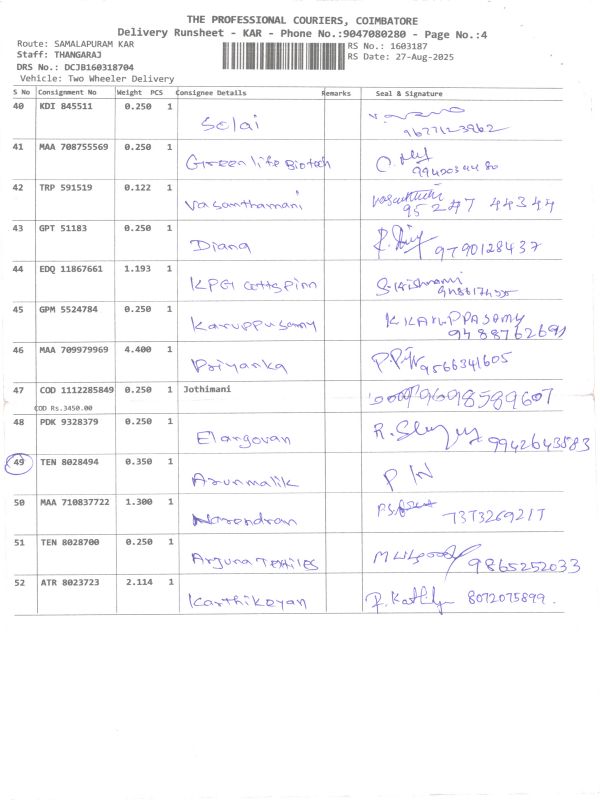 THE PROFESSIONAL COURIERS, COIMBATORE
Delivery Runsheet - KAR - Phone No.:9047080280 - Page No.:4
Route: SAMALAPURAM KAR
Staff: THANGARAJ
DRS No.: DCJB160318704
Vehicle: Two Wheeler Delivery
RS No.: 1603187
RS Date: 27-Aug-2025
S No Consignment No Weight PCS Consignee Details Remarks Seal & Signature
40 KDI 845511 0.250 1 Selai 9677123962
41 MAA 708755569 0.250 1 Greenlife Biotech
42 TRP 591519 0.122 1 Vasanthamani 95247 44344
43 GPT 51183 0.250 1 Diana 9790128437
44 EDQ 11867661 1.193 1 KPG Cottspinn
45 GPM 5524784 0.250 1 Karuppusamy K KARUPPASAMY 9488762691
46 MAA 709979969 4.400 1 Priyanka 9566341605
47 COD 1112285849 0.250 1 Jothimani 9698589607
COD Rs.3450.00
48 PDK 9328379 0.250 1 Elangovan 9942643583
49 TEN 8028494 0.350 1 Arunmalik P IN
50 MAA 710837722 1.300 1 Narendran 7373269217
51 TEN 8028700 0.250 1 Arjuna Textiles 9865252033
52 ATR 8023723 2.114 1 Karthikeyan 8072075899.